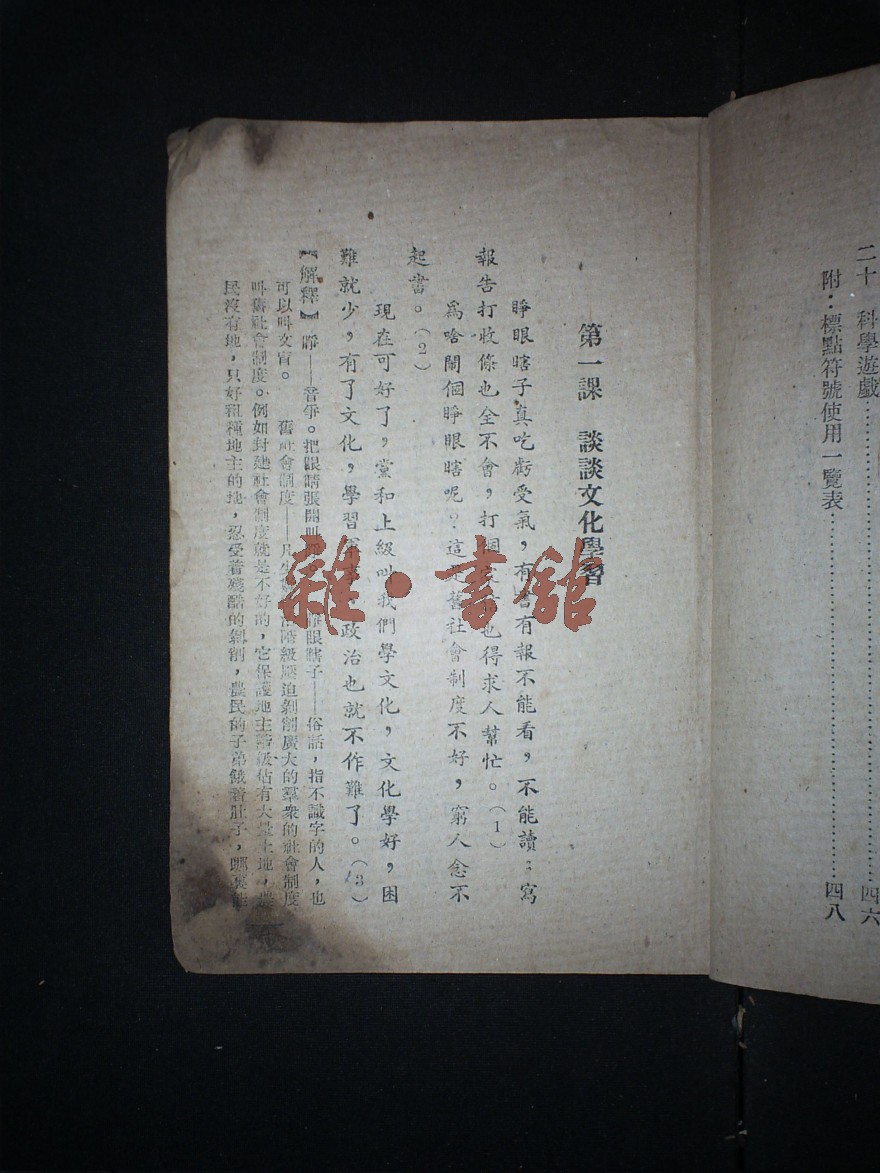 二十 科學遊戲……………………四六
附：標點符號使用一覽表……………………四八
第一課 談談文化學習
睜眼瞎子真吃虧受氣，有書有報不能看，不能讀；寫
報告打收條也全不會，打個 也得求人幫忙。（1）
爲啥鬧個睜眼瞎呢？這是舊社會制度不好，窮人念不
起書。（2）
現在可好了，黨和上級叫我們學文化，文化學好，困
難就少，有了文化，學習軍 政治也就不作難了。（3）
【解釋】睜——音爭。把眼睛張開叫 睜眼瞎子——俗話，指不識字的人，也
可以叫文盲。 舊社會制度——凡 階級壓迫剝削廣大的羣衆的社會制度
叫舊社會制度。例如封建社會制度就是不好的，它保護地主階級佔有大量土地，農
民沒有地，只好租種地主的地，忍受着殘酷的剝削，農民的子弟餓着肚子，哪裏能
雜·書館